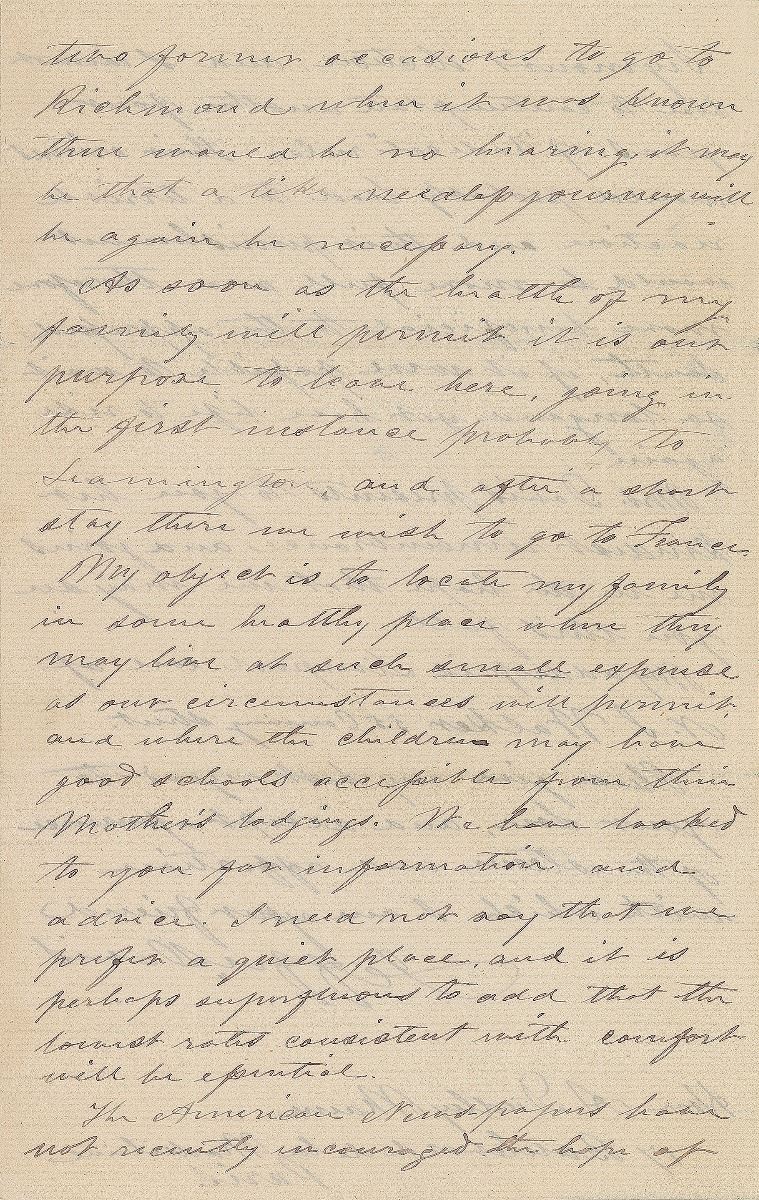 two former occasions to go to
Richmond when it was known
there would be no hearing, it may
be that a like needless journey will
be again be necessary.
As soon as the health of my
family will permit it is our
purpose to leave here, going in
the first instance probably to
Leamington and after a short
stay there we wish to go to France.
My object is to locate my family
in some healthy place where they
may live at such small expense
as our circumstances will permit,
and where the children may have
good schools accessible from their
Mother's lodgings. We have looked
to you for information and
advice. I need not say that we
prefer a quiet place, and it is
perhaps superfluous to add that the
lowest rates consistent with comfort
will be essential.
The American Newspapers have
not recently encouraged the hope of